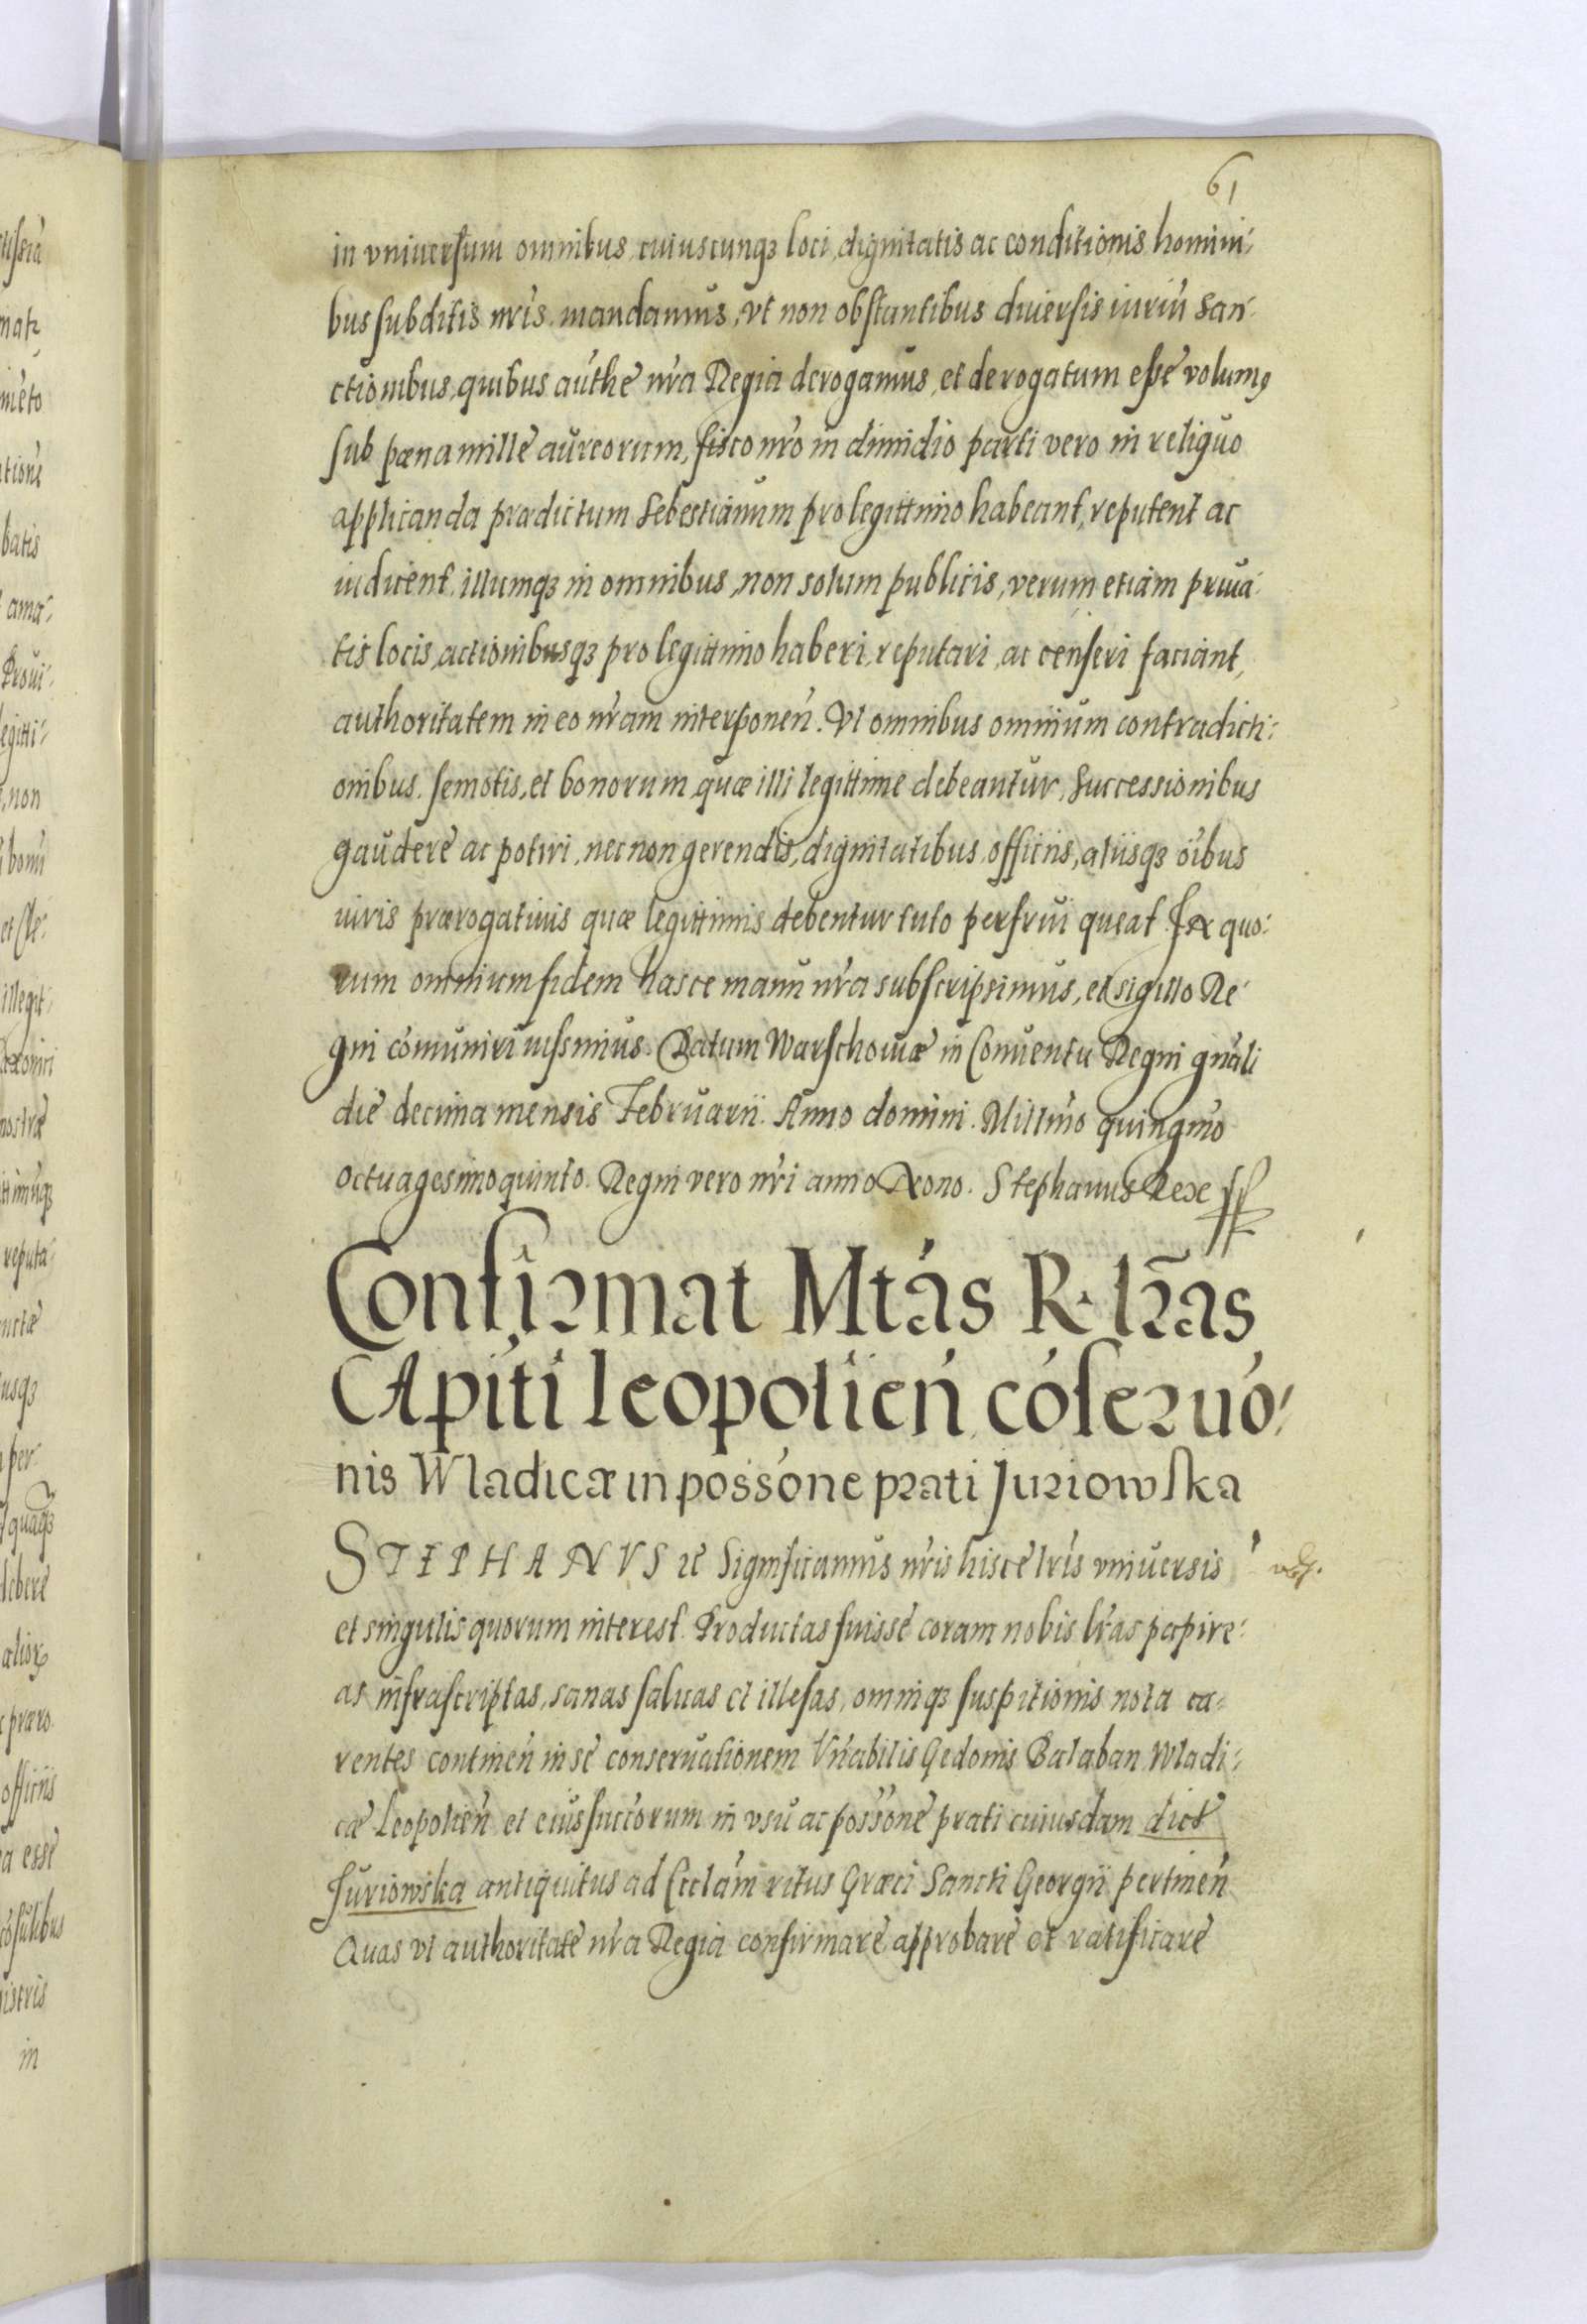 61
in vniuersum omnibus, cuiuscunqȝ loci, dignitatis ac conditionis homini:
bus subditis nr̃is. mandamus, vt non obstantibus diuersis iuriũ San:
ctionibus, quibus authẽ nr̃a Regia derogamus, et derogatum esse volumꝯ
sub pœna mille aureorum, fisco nr̃o in dimidio parti vero in reliquo
applicanda prædictum Sebestianum pro legittimo habeant, reputent ac
iudicent, illumqȝ in omnibus, non solum publicis, verum etiam priua:
tis locis, actionibusqȝ pro legittimo haberi, reputari, ac censeri faciant,
authoritatem in eo nr̃am interponeñ. Vt omnibus omnium contradicti:
onibus. semotis, et bonorum, quæ illi legittime debeantur, Successionibus
gaudere ac potiri, nec non gerendis, dignitatibus, officiis, aliisqȝ oĩbus
iuris prærogatiuis quæ legittimis debentur tuto perfrui queat. In quo:
rum omnium fidem hasce manu nr̃a subscripsimus, et sigillo Re:
gni cõmuniri iussimus. Datum Warschowiæ in Conuentu Regni gnãli
die decima mensis Februarii. Anno domini. Millmõ quingmõ
octuagesimo quinto. Regni vero nr̃i anno Nono. Stephanus Rex
Confirmat Mtás R. lr̃as
CApiti leopolieñ cóseruó:
nis Wladicæ in possóne prati Juriowska
STEPHANVS ꝛc̃ Significamus nr̃is hisce lr̃is vniuersis
et singulis quorum interest. Productas fuisse coram nobis lr̃as papire:
as infrascriptas, sanas saluas et illesas, omniqȝ suspitionis nota ca:
rentes contineñ in se conseruationem Vñabilis Gedonis Balaban Wladi:
cæ Leopolieñ et eius succorum in vsu ac possóne prati cuiusdam dict̃
Juriowska antiquitus ad Ecclãm ritus Græci Sancti Georgii pertineñ
Quas vt authoritate nr̃a Regia confirmare, approbare et ratificare